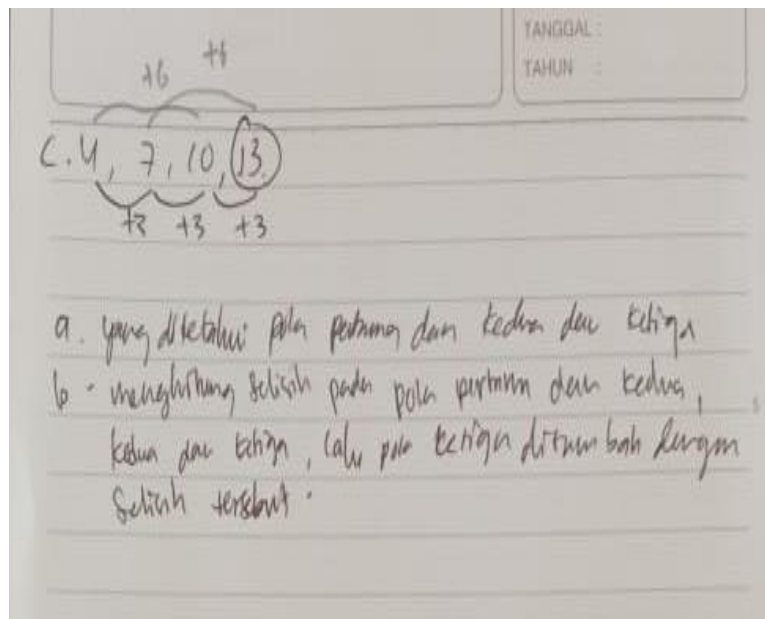 TANGGAL :
TAHUN :
+6 +6
C. 4, 7, 10, 13
+3 +3 +3
a. yang diketahui pola pertama dan kedua dan ketiga
b. menghitung selisih pada pola pertama dan kedua,
kedua dan ketiga, lalu pola ketiga ditumbah dengan
selisih tersebut.